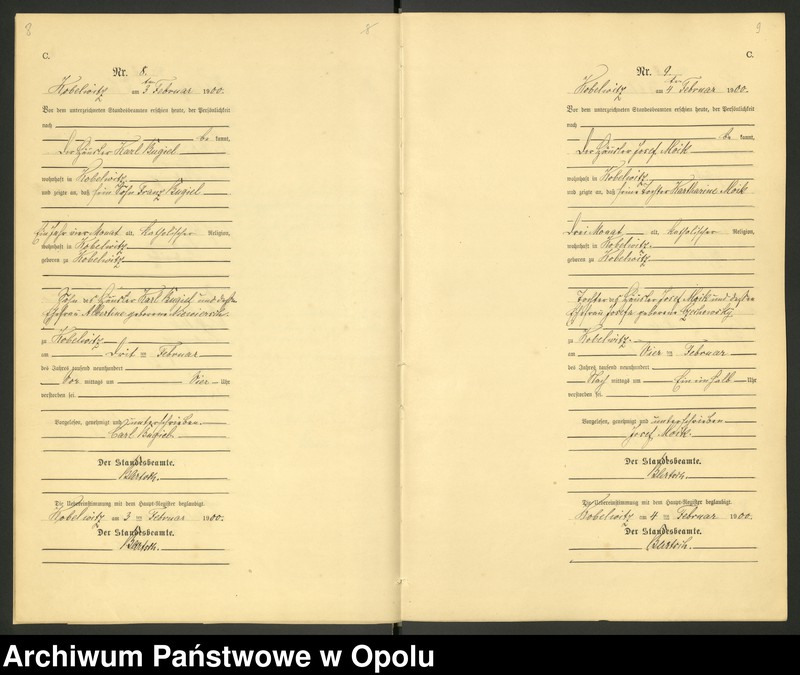 8
8
C.
Nr. 8.
Kobelwitz am 3ten Februar 1900.
Vor dem unterzeichneten Standesbeamten erschien heute, der Persönlichkeit
nach
be kannt,
Der Häusler Karl Bugiel
wohnhaft in Kobelwitz
und zeigte an, daß sein Sohn Franz Bugiel
Ein Jahr vier Monat alt, katholischer Religion,
wohnhaft in Kobelwitz
geboren zu Kobelwitz
Sohn des Häusler Karl Bugiel und dessen
Ehefrau Albertine geborene
zu Kobelwitz
am Drit ten Februar
des Jahres tausend neunhundert
Vor mittags um Vier Uhr
verstorben sei.
Vorgelesen, genehmigt und unterschrieben.
Carl Bugiel.
Der Standesbeamte.
Die Uebereinstimmung mit dem Haupt-Register beglaubigt.
Kobelwitz am 3 ten Februar 1900.
Der Standesbeamte.
9
C.
Nr. 9
Kobelwitz am 4ten Februar 1900.
Vor dem unterzeichneten Standesbeamten erschien heute, der Persönlichkeit
nach
be kannt,
Der Häusler Josef Moik
wohnhaft in Kobelwitz
und zeigte an, daß seine Tochter Katharine Moik
Drei Monat alt, katholischer Religion,
wohnhaft in Kobelwitz
geboren zu Kobelwitz
Tochter des Häusler Josef Moik und dessen
Ehefrau Josefa geborene
zu Kobelwitz.
am Vier ten Februar
des Jahres tausend neunhundert
Nach mittags um Ein ein halb Uhr
verstorben sei.
Vorgelesen, genehmigt und unterschrieben
Josef Moik.
Der Standesbeamte.
Die Uebereinstimmung mit dem Haupt-Register beglaubigt.
Kobelwitz am 4 ten Februar 1900.
Der Standesbeamte.
Archiwum Państwowe w Opolu